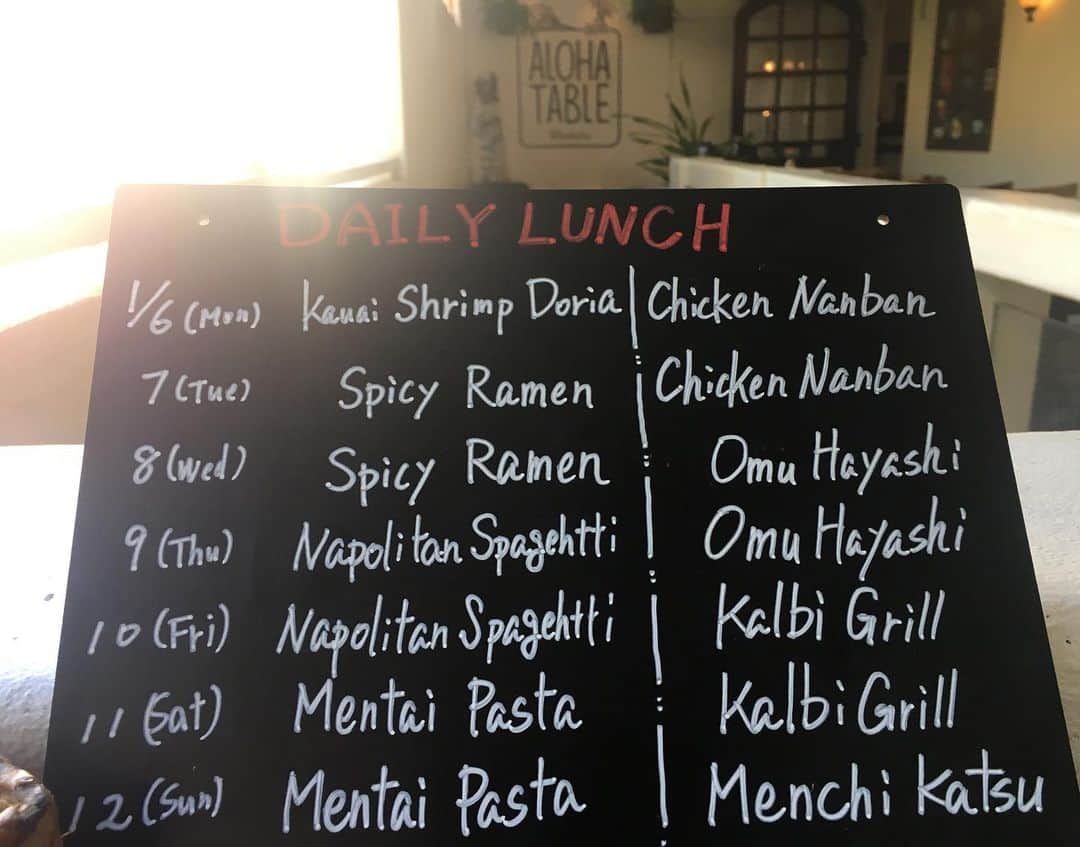 ALOHA
TABLE
DAILY LUNCH
1/6 (Mon) Kauai Shrimp Doria | Chicken Nanban
7 (Tue) Spicy Ramen Chicken Nanban
8 (Wed) Spicy Ramen Omu Hayashi
9 (Thu) Napolitan Spagehtti Omu Hayashi
10 (Fri) Napolitan Spagehtti Kalbi Grill
11 (Sat) Mentai Pasta Kalbi Grill
12 (Sun) Mentai Pasta Menchi Katsu